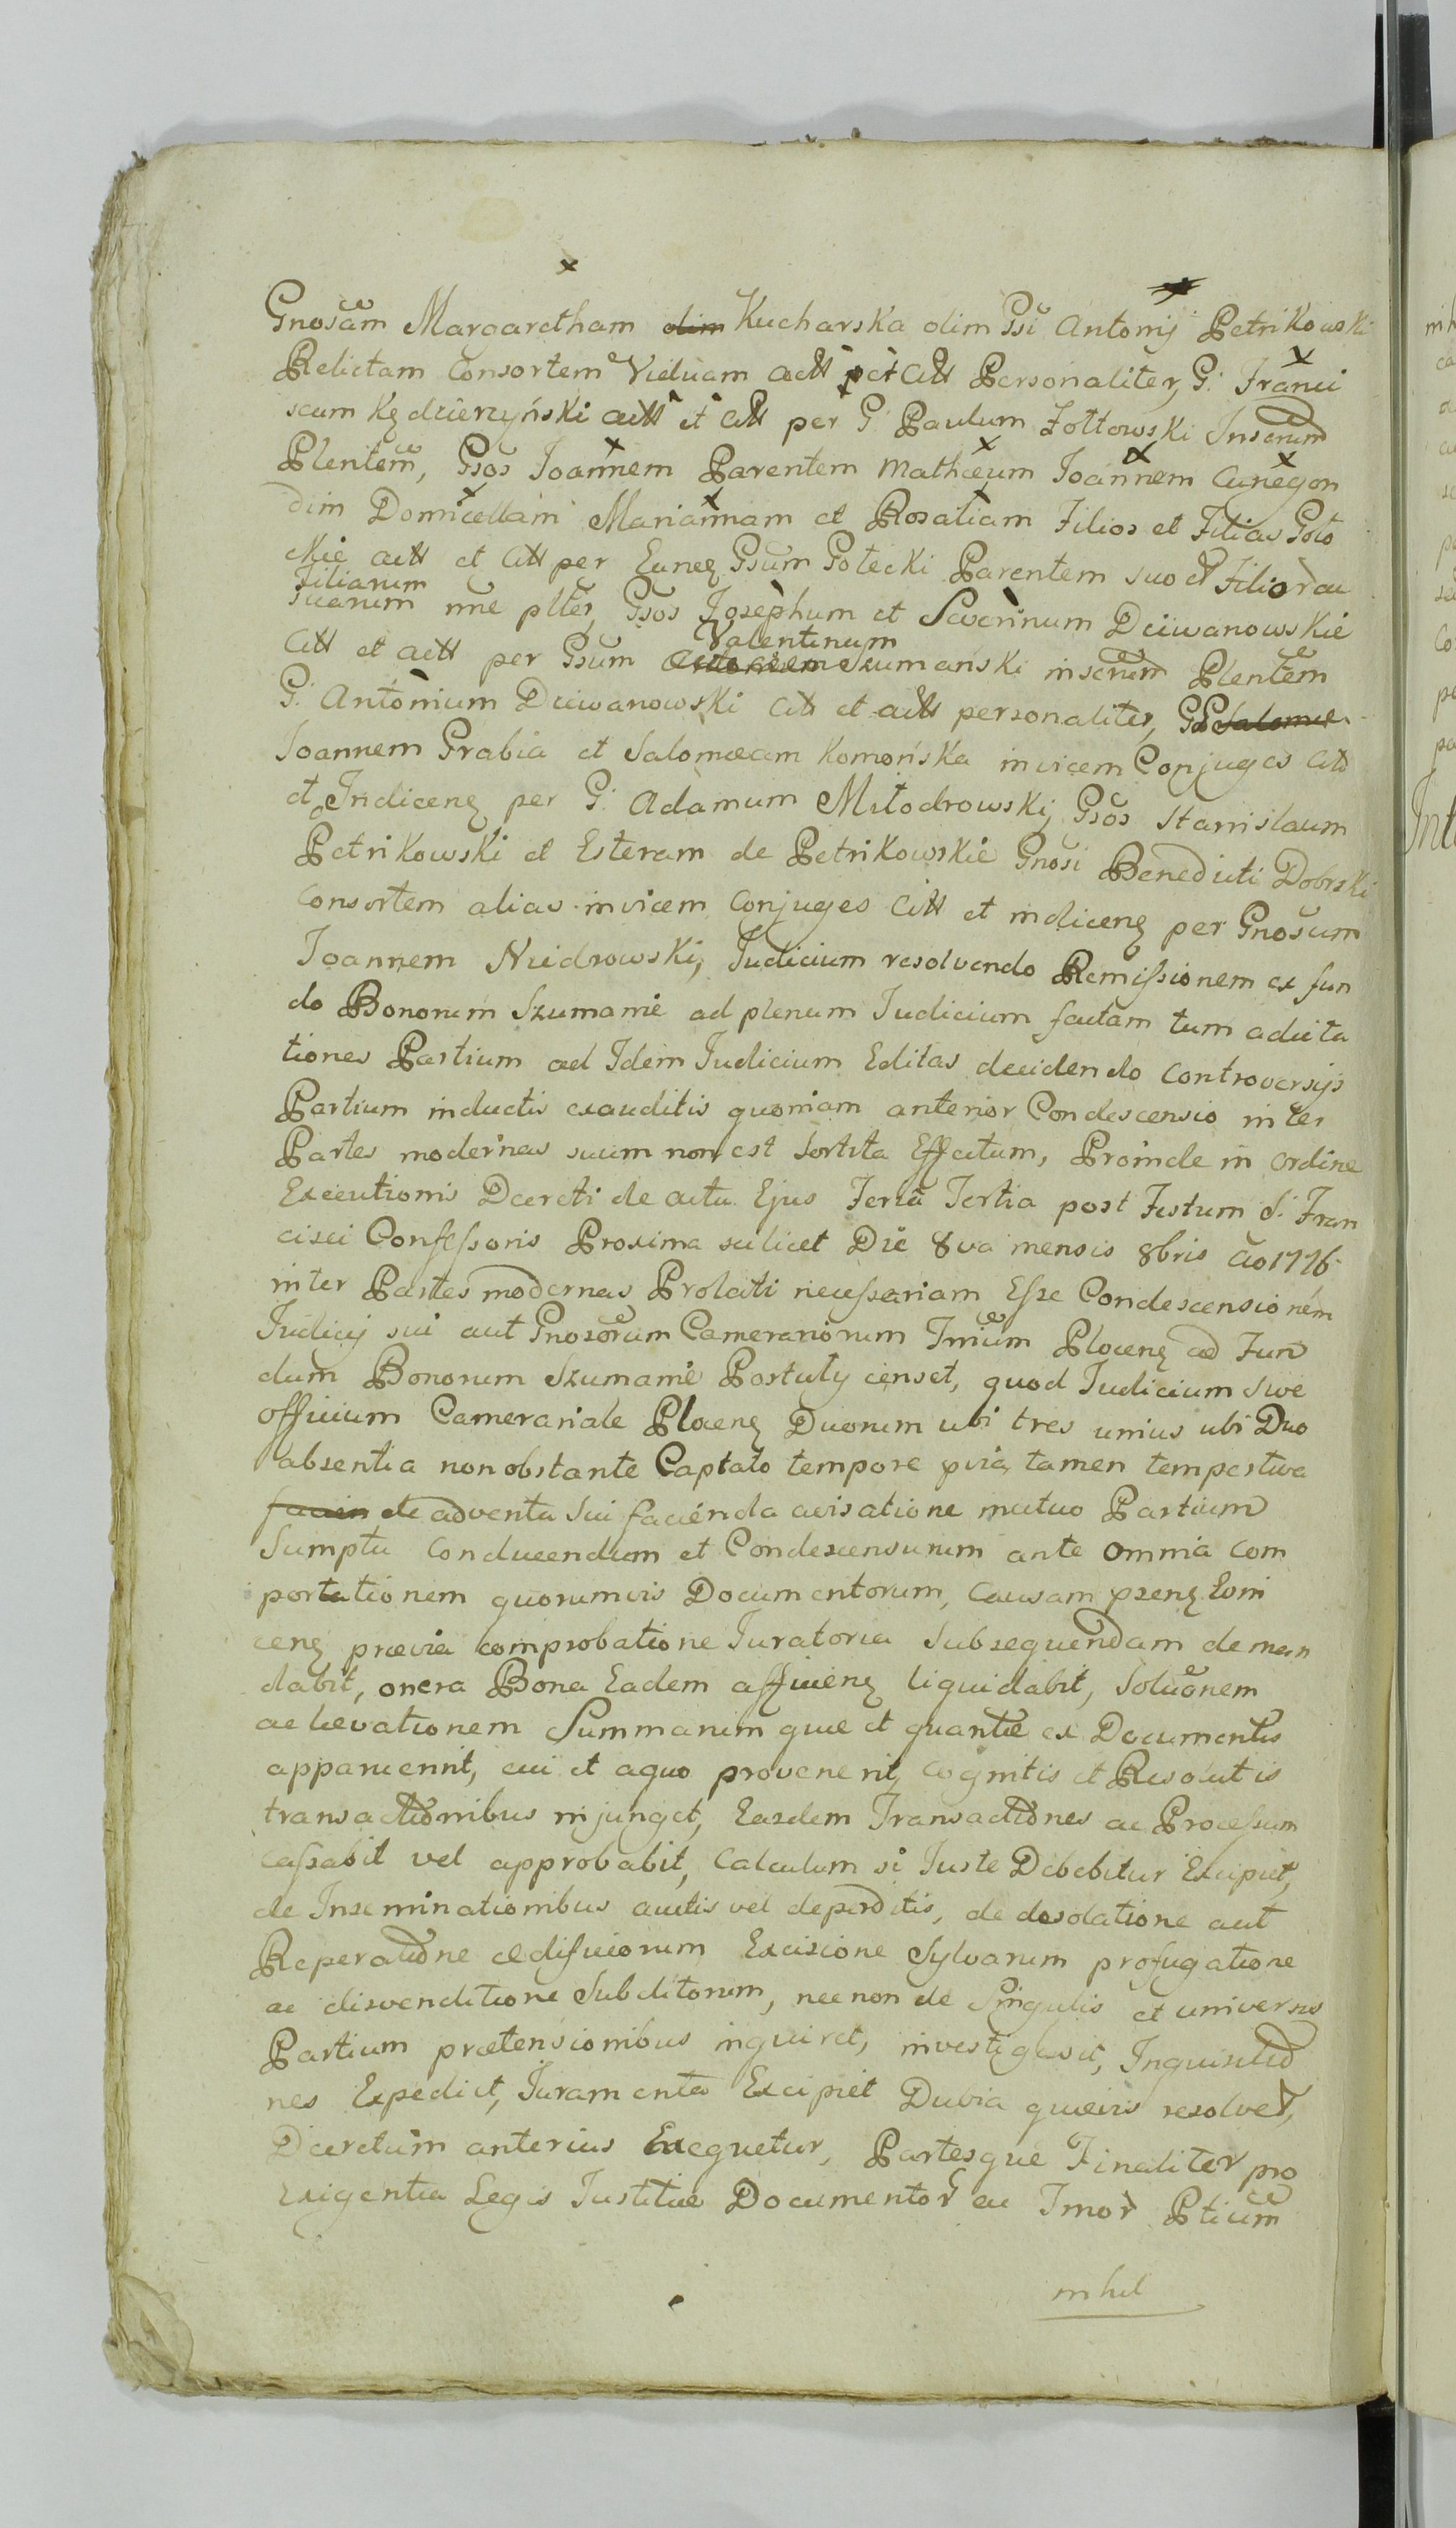 Gnosam Margaretham olim Kucharska olim Gsi Antonij Petrikowski
Relictam Consortem Viduam actt et citt Personaliter, G. Franci
scum Kędzierzyński actt et citt per G. Paulum Żołtowski Inserum
Plentem, Gsos Joannem Parentem Mathæum Joannem Cunegon
dim Domicellam Mariannam et Rosaliam Filios et Filias Goło
ckie actt et citt per Eunq Gsum Gołecki Parentem suo et Filior ac
Filiarum
suarum nne plter, Gsos Josephum et Severinum Dziwanowskie
Valentinum
citt et actt per Gsum Szumański inserum Plentem
G. Antonium Dziwanowski citt et actt personaliter, GG Salomea
Joannem Grabia et Salomeam Komońska invicem Conjuges citt
et Indicenq per G. Adamum Młodrowski, Gsos Stanislaum
Petrikowski et Esteram de Petrikowskie Gnosi Benedicti Dobrski
Consortem alias invicem Conjuges citt et indicenq per Gnosum
Joannem Niedrowski, Judicium resolvendo Remissionem ex fun
do Bonorum Szumanie ad plenum Judicium factam tum adcita
tiones Partium ad Idem Judicium Editas decidendo Controversijs
Partium inductis exauditis quoniam anterior Condescensio inter
Partes modernas suum non est Sortita Effectum, Proinde in ordine
Executionis Decreti de actu Ejus Feria Tertia post Festum S. Fran
cisci Confessoris Proxima scilicet Die 8va mensis 8bris Ao 1776
inter Partes modernas Prolati necessariam Esse Condescensionem
Judicij sui aut Gnosorum Camerariorum Trium Plocenq ad Fun
dum Bonorum Szumanie Postuly censet, quod Judicium sive
officium Camerariale Plocenq Duorum ubi tres unius ubi Duo
absentia non obstante Captato tempore pvia tamen tempestiva
facien de adventu sui facienda avisatione mutuo Partium
Sumptu Conducendum et Condescensurum ante omnia com
portationem quorumvis Documentorum, Causam psenq
cenq prævia comprobatione Juratoria Subsequendam deman
dabit, onera Bona Eadem afficienq liquidabit, Soluonem
ac levationem Summarum quæ et quantæ ex Documentis
apparuerint, cui et aquo provenerit, cognitis et Resolutis
transactionibus injunget, Easdem Transactiones ac Processum
cassabit vel approbabit, Calculum si Juste Debebitur Excipiet,
de Inseminationibus auctis vel deperditis, de desolatione aut
Reperatione ædificiorum Excisione Sylvarum profugatione
ac disvenditione Subditorum, nec non de Singulis et universis
Partium prætensionibus inquiret, investigabit, Inquisitio
nes Expediet, Juramenta Excipiet Dubia quævis resolvet,
Decretum anterius Exequetur, Partesque Finaliter pro
Exigentia Legis Justitiæ Documentor ac Jnior Ptium
nihil